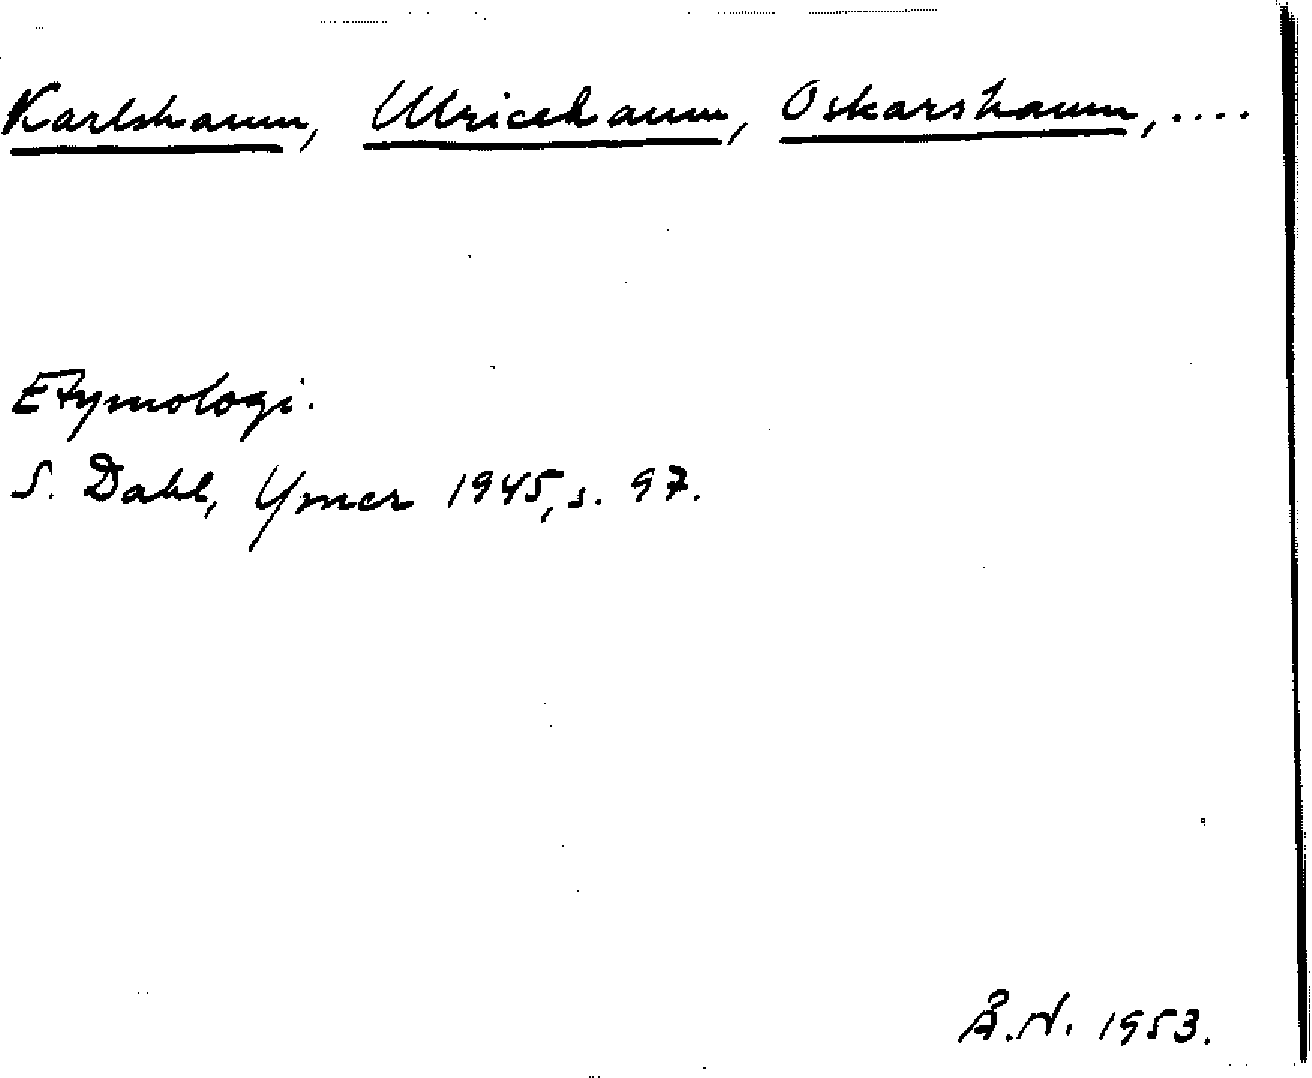 Karlshamn, Ulricehamn, Oskarshamn, ....
Etymologi.
S. Dahl, Ymer 1945, s. 97.
Å.N. 1953.